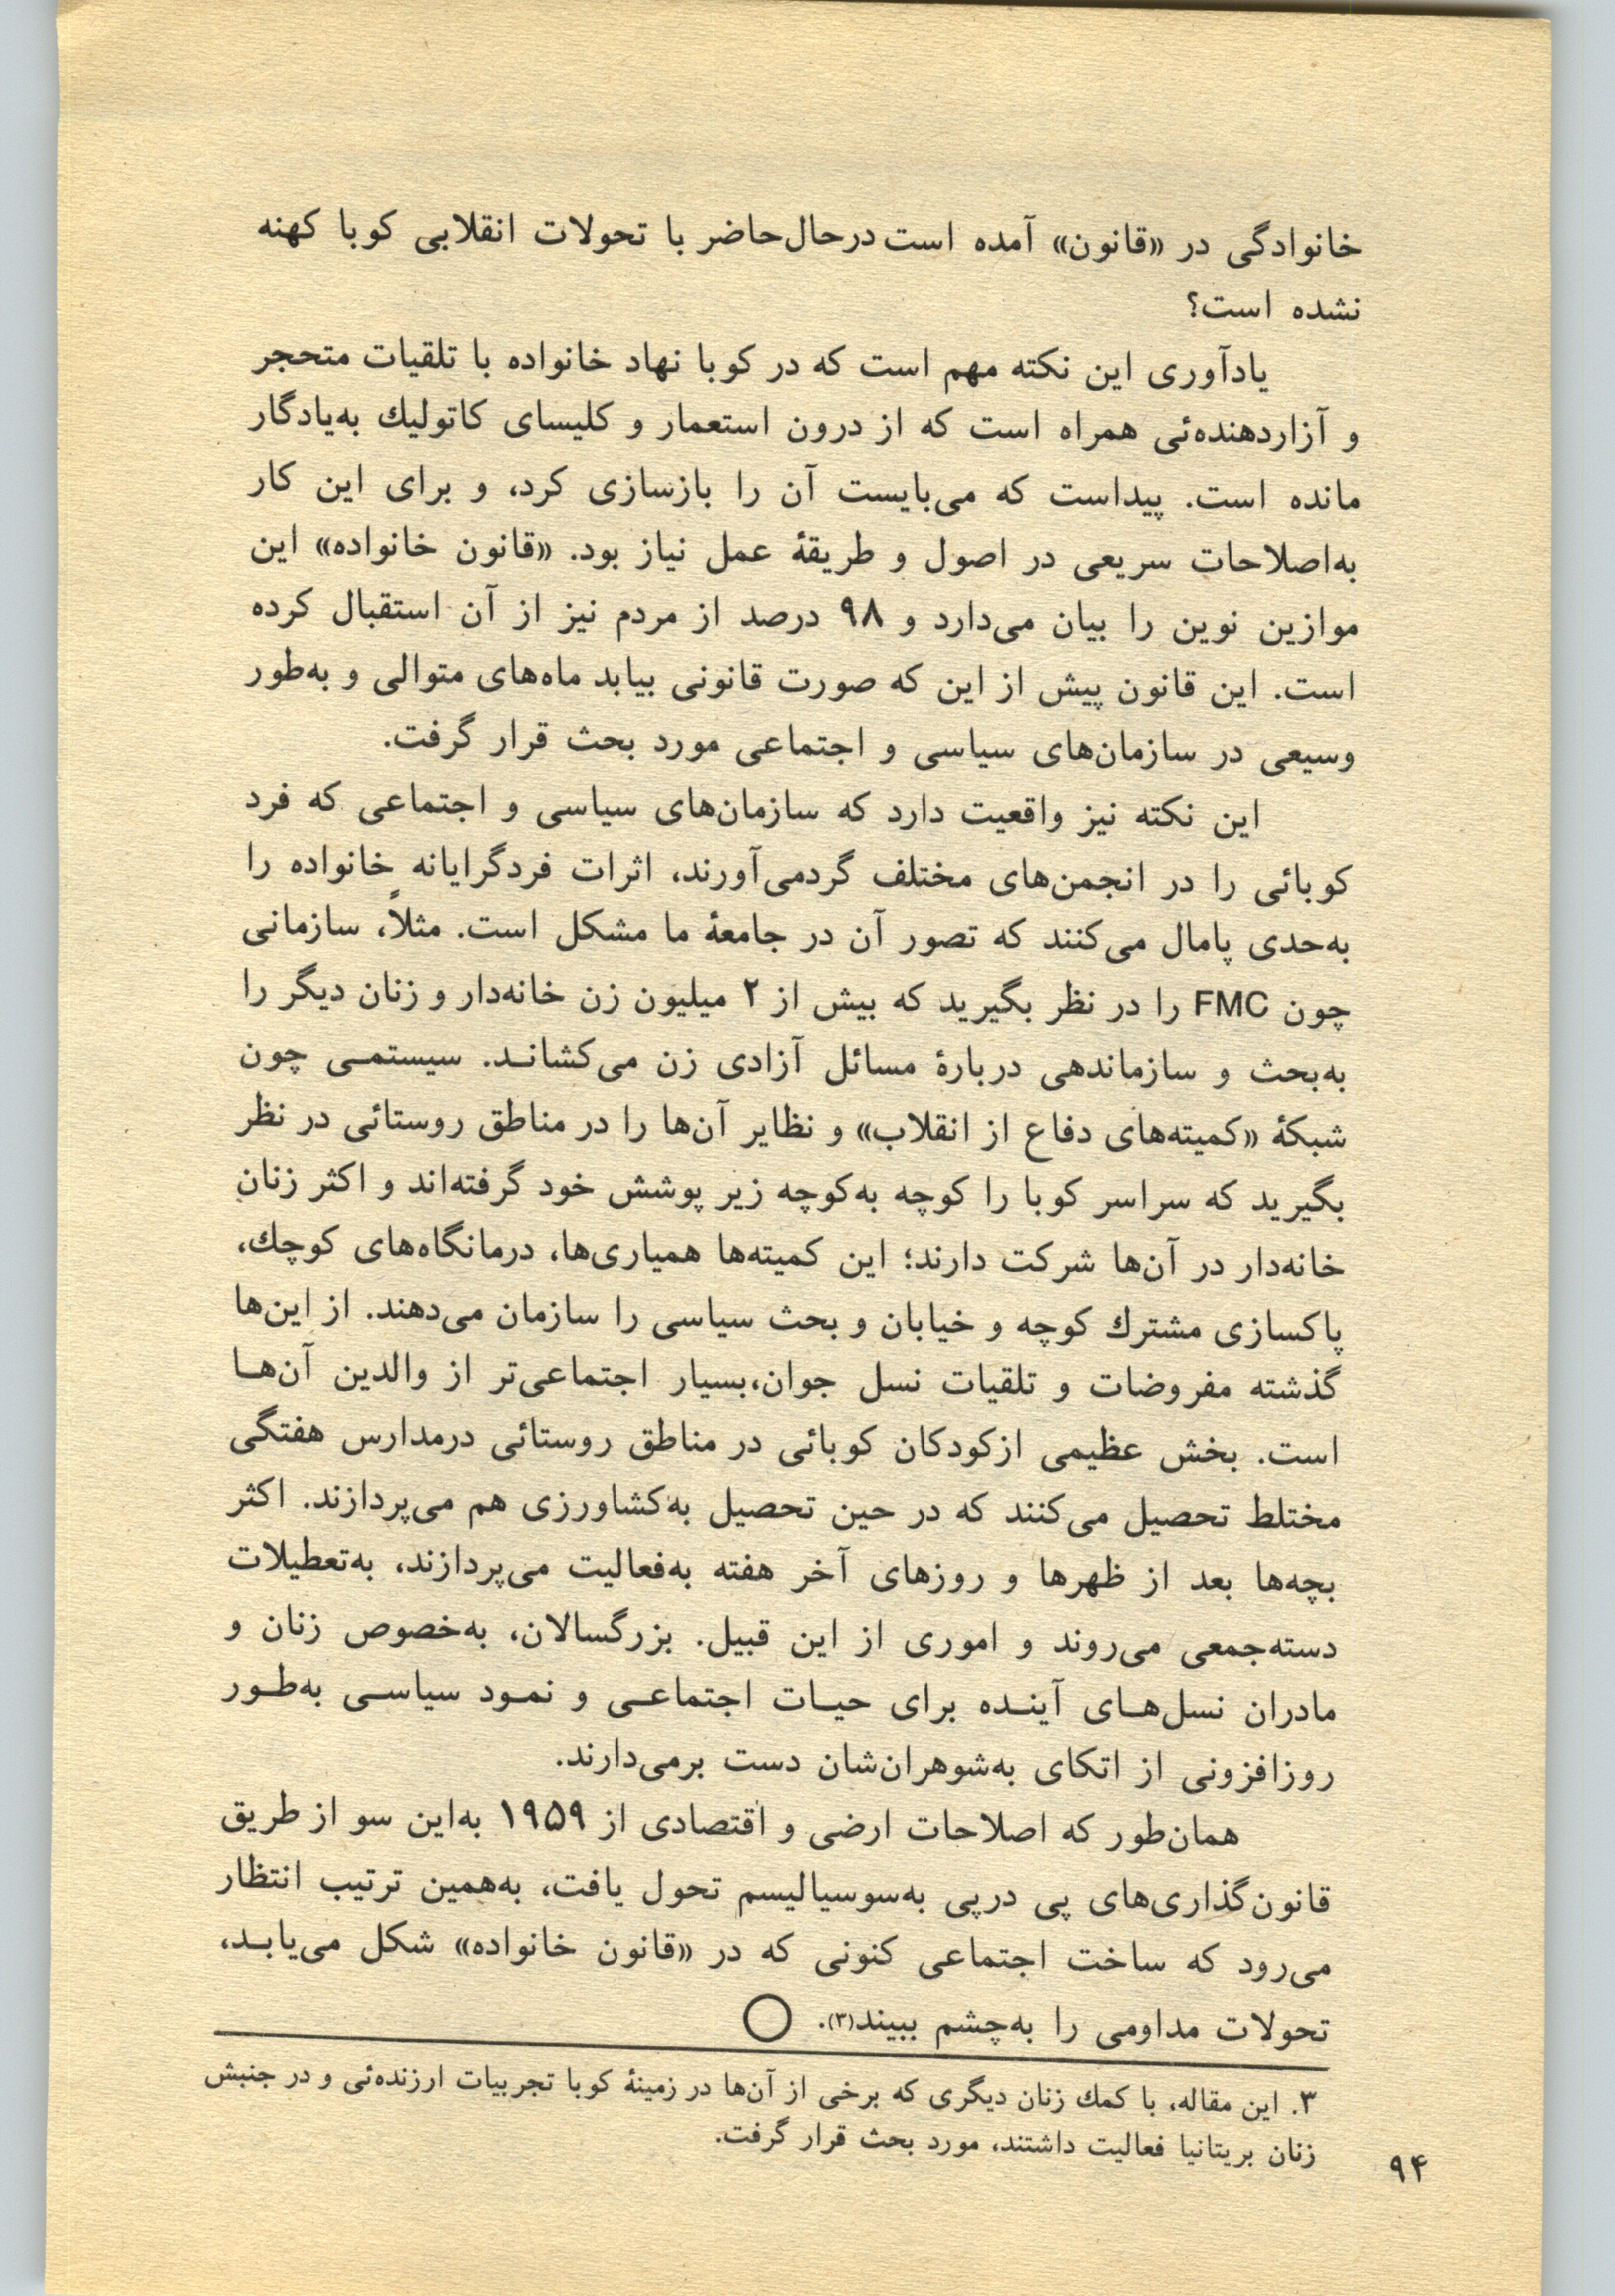 خانوادگی در «قانون» آمده است درحال‌حاضر با تحولات انقلابی کوبا کهنه
نشده است؟
یادآوری این نکته مهم است که در کوبا نهاد خانواده با تلقیات متحجر
و آزاردهنده‌ئی همراه است که از درون استعمار و کلیسای کاتولیك به‌یادگار
مانده است. پیداست که می‌بایست آن را بازسازی کرد، و برای این کار
به‌اصلاحات سریعی در اصول و طریقهٔ عمل نیاز بود. «قانون خانواده» این
موازین نوین را بیان می‌دارد و ۹۸ درصد از مردم نیز از آن استقبال کرده
است. این قانون پیش از این که صورت قانونی بیابد ماه‌های متوالی و به‌طور
وسیعی در سازمان‌های سیاسی و اجتماعی مورد بحث قرار گرفت.
این نکته نیز واقعیت دارد که سازمان‌های سیاسی و اجتماعی که فرد
کوبائی را در انجمن‌های مختلف گردمی‌آورند، اثرات فردگرایانه خانواده را
به‌حدی پامال می‌کنند که تصور آن در جامعهٔ ما مشکل است. مثلاً، سازمانی
چون FMC را در نظر بگیرید که بیش از ۲ میلیون زن خانه‌دار و زنان دیگر را
به‌بحث و سازماندهی دربارهٔ مسائل آزادی زن می‌کشانـد. سیستمـی چون
شبکهٔ «کمیته‌های دفاع از انقلاب» و نظایر آن‌ها را در مناطق روستائی در نظر
بگیرید که سراسر کوبا را کوچه به‌کوچه زیر پوشش خود گرفته‌اند و اکثر زنانِ
خانه‌دار در آن‌ها شرکت دارند؛ این کمیته‌ها همیاری‌ها، درمانگاه‌های کوچك،
پاکسازی مشترك کوچه و خیابان و بحث سیاسی را سازمان می‌دهند. از این‌ها
گذشته مفروضات و تلقیات نسل جوان،بسیار اجتماعی‌تر از والدین آن‌هـا
است. بخش عظیمی ازکودکان کوبائی در مناطق روستائی درمدارس هفتگی
مختلط تحصیل می‌کنند که در حین تحصیل به‌کشاورزی هم می‌پردازند. اکثر
بچه‌ها بعد از ظهرها و روزهای آخر هفته به‌فعالیت می‌پردازند، به‌تعطیلات
دسته‌جمعی می‌روند و اموری از این قبیل. بزرگسالان، به‌خصوص زنان و
مادران نسل‌هـای آینـده برای حیـات اجتماعـی و نمـود سیاسـی به‌طـور
روزافزونی از اتکای به‌شوهران‌شان دست برمی‌دارند.
همان‌طور که اصلاحات ارضی و اقتصادی از ۱۹۵۹ به‌این سو از طریق
قانون‌گذاری‌های پی درپی به‌سوسیالیسم تحول یافت، به‌همین ترتیب انتظار
می‌رود که ساخت اجتماعی کنونی که در «قانون خانواده» شکل می‌یابـد،
تحولات مداومی را به‌چشم ببیند(۳).
۳. این مقاله، با کمك زنان دیگری که برخی از آن‌ها در زمینهٔ کوبا تجربیات ارزنده‌ئی و در جنبش
زنان بریتانیا فعالیت داشتند، مورد بحث قرار گرفت.
۹۴